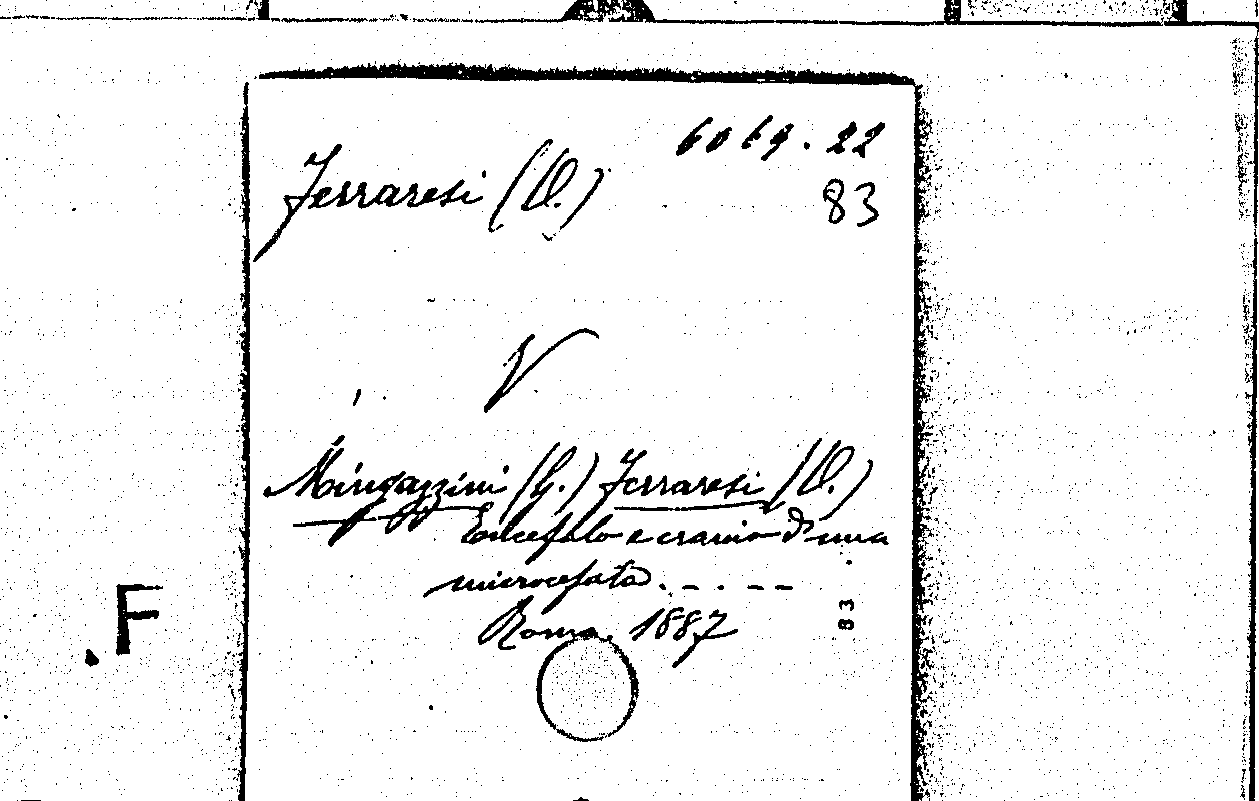 6069.22
Ferraresi (O.)
83
V
Mingazzini (G.) Ferraresi (O.)
Encefalo e cranio d'una
microcefala. - . - -
Roma. 1887
83
.F